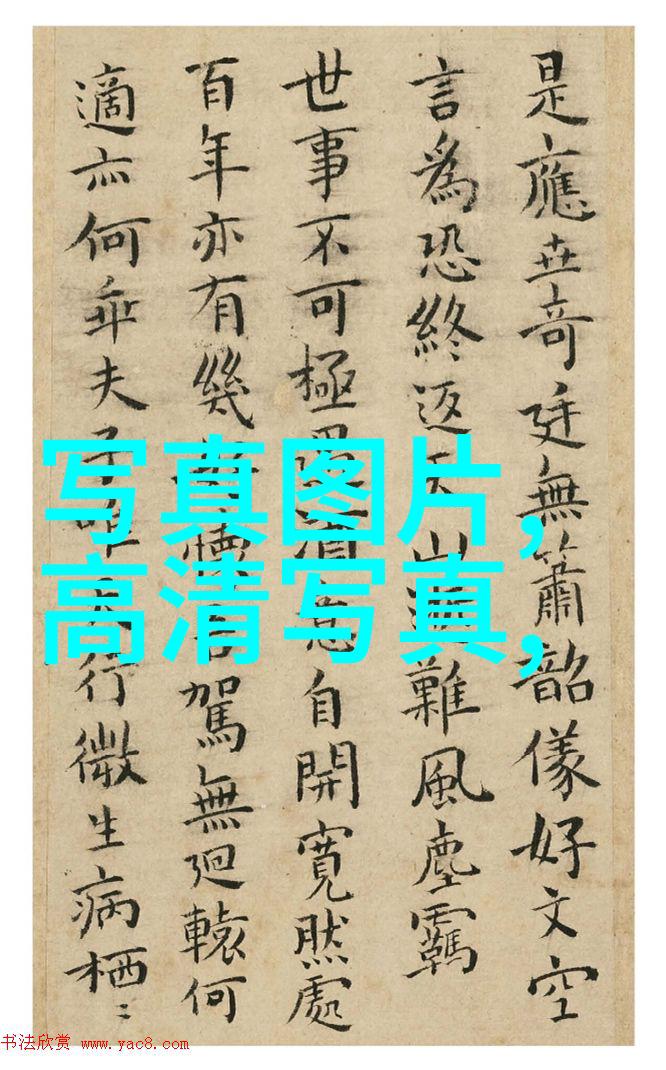 是應世奇廷無簫韶儀好文空
言為恐終返山難風塵羈
世事不可極自開寬然處
百年亦有幾駕無迴轅何
適亦何乖夫行微生病栖〻
写真图片,
高清写真,
书法欣赏 www.yac8.com